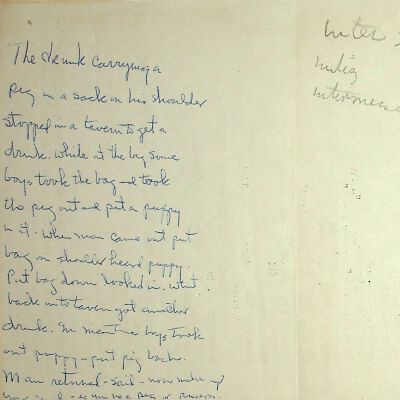 The drunk carrying a
pig in a sack on his shoulder
stopped in a tavern to get a
drink. While at the bag some
boys took the bag and took
the pig out and put a puppy
in it. When man came out put
bag on shoulder heard puppy
Put bag down looked in. went
back into tavern got another
drink. In meantime boys took
out puppy - put pig back.
Man returned - said - now make up
your mind - a pig or puppy.
inter
intermezzo